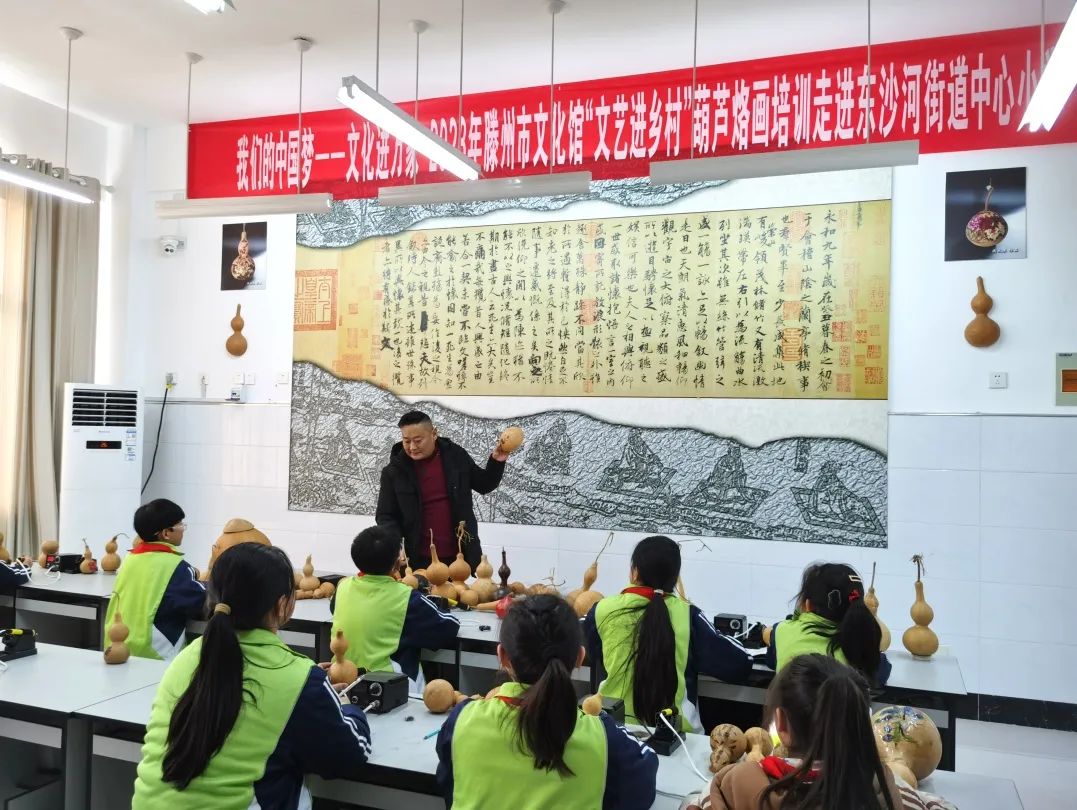 我们的中国梦——文化进万家 2023年滕州市文化馆“文艺进乡村”葫芦烙画培训走进东沙河街道中心小
永和九年歲在癸丑暮春之初會
于會稽山陰之蘭亭脩稧事
也群賢畢至少長咸集此地
有崇山峻領茂林脩竹又有清流激
湍暎帶左右引以為流觴曲水
列坐其次雖無絲竹管弦之
盛一觴一詠亦足以暢敘幽情
是日也天朗氣清惠風和暢仰
觀宇宙之大俯察品類之盛
所以遊目騁懷足以極視聽之
娛信可樂也夫人之相與俯仰
一世或取諸懷抱悟言一室之內
或因寄所託放浪形骸之外雖
趣舍萬殊靜躁不同當其欣
於所遇暫得於己快然自足不
知老之將至及其所之既惓情
隨事遷感慨係之矣向之所
欣俛仰之間以為陳跡猶不
能不以之興懷況脩短隨化終
期於盡古人云死生亦大矣豈
不痛哉每攬昔人興感之由
若合一契未嘗不臨文嗟悼不
能喻之於懷固知一死生為虛
誕齊彭殤為妄作後之視今
亦由今之視昔悲夫故列
敘時人錄其所述雖世殊事
異所以興懷其致一也後之攬
者亦將有感於斯文